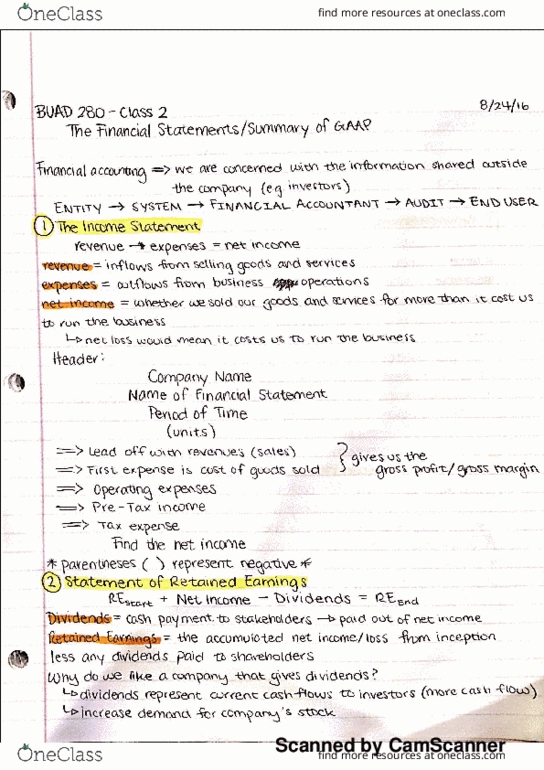 OneClass
find more resources at oneclass.com
BUAD 280 - Class 2
8/24/16
The Financial Statements/Summary of GAAP
Financial accounting => we are concerned with the information shared outside
the company (eg investors)
ENTITY → SYSTEM → FINANCIAL ACCOUNTANT → AUDIT → END USER
① The Income Statement
revenue → expenses = net income
revenue = inflows from selling goods and services
expenses = outflows from business operations
net income = whether we sold our goods and services for more than it cost us
to run the business
↳ net loss would mean it costs us to run the business
Header:
Company Name
Name of Financial Statement
Period of Time
(units)
=> Lead off with revenues (sales)
=> First expense is cost of goods sold
} gives us the
gross profit/gross margin
=> Operating expenses
=> Pre-Tax income
=> Tax expense
Find the net income
* parentheses ( ) represent negative *
② Statement of Retained Earnings
REstart + Net Income - Dividends = REEnd
Dividends = cash payment to stakeholders → paid out of net income
Retained Earnings = the accumulated net income/loss from inception
less any dividends paid to shareholders
Why do we like a company that gives dividends?
↳ dividends represent current cash flows to investors (more cash flow)
↳ increase demand for company's stock
Scanned by CamScanner
OneClass
find more resources at oneclass.com